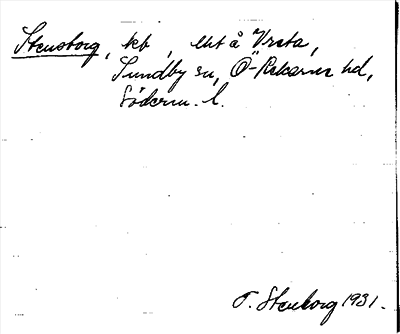 Stensborg, tkb, lht å Vreta,
Sundby sn, Ö-Rekarne hd,
Söderm. l.
O. Stenborg 1931.